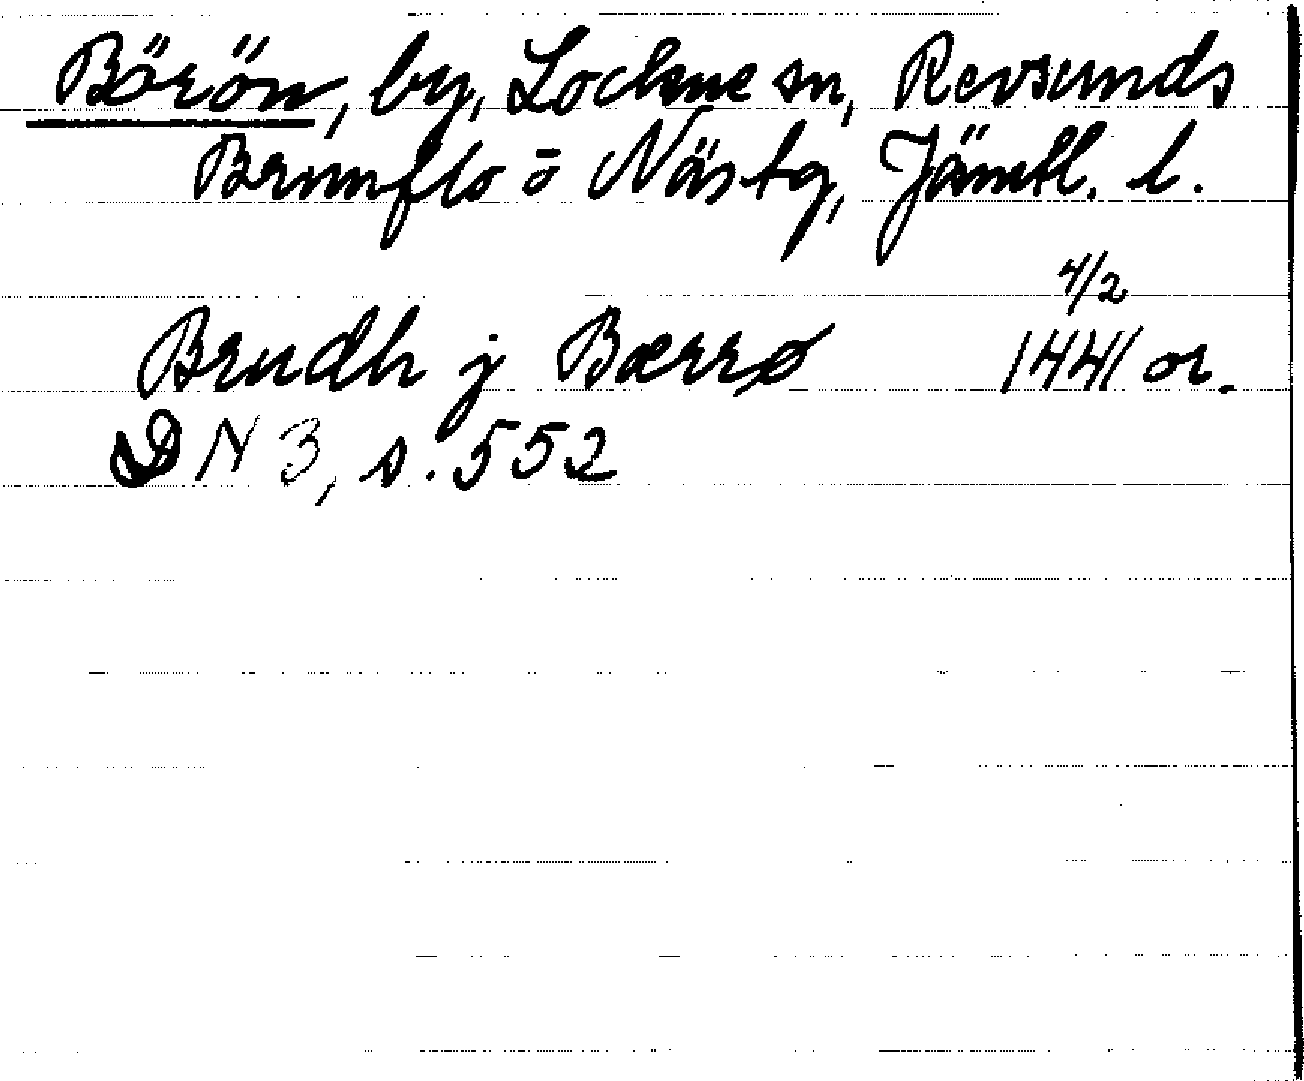 Börön, by, Lockne sn, Revsunds
Brunflo o Näs tg, Jämtl. l.
4/2
Brudh j Bærrø 1441 or.
DN 3, s. 552